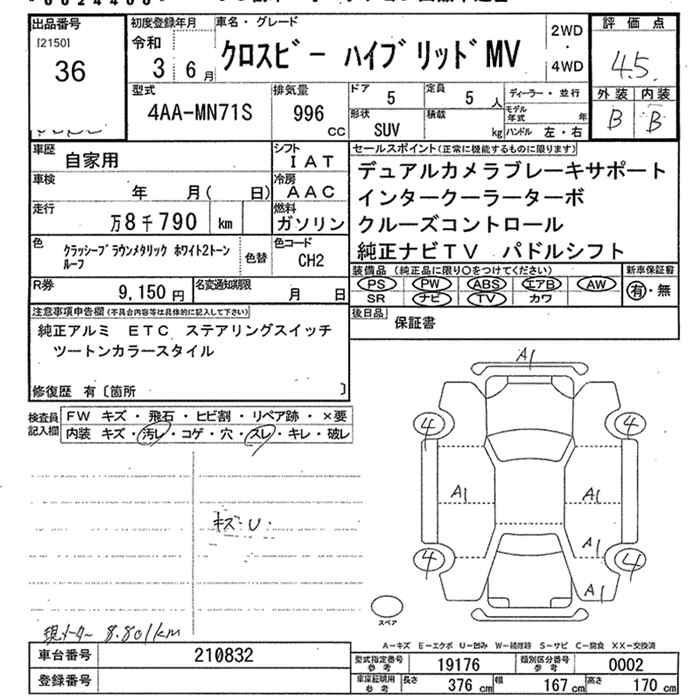 出品番号
[2150]
36
初度登録年月
令和
3年 6月
車名・グレード
クロスビー ハイブリッドMV
2WD
・
4WD
評価点
4.5
外装 内装
B B
型式
4AA-MN71S
排気量
996
CC
ドア
5
定員
5人
形状
SUV
積載
kg
ディーラー・並行
モデル年式 年
ハンドル 左・右
車歴
自家用
シフト
IAT
車検
年 月( 日)
冷房
AAC
走行
万8千790 km
燃料
ガソリン
色
クラッシーブラウンメタリック ホワイト2トーン
ルーフ
色替
色コード
CH2
R券
9,150円
名変通知期限
月 日
セールスポイント(正常に機能するものに限ります)
デュアルカメラブレーキサポート
インタークーラーターボ
クルーズコントロール
純正ナビTV パドルシフト
装備品 (純正品に限り○をつけてください)
PS PW ABS エアB AW
SR ナビ TV カワ
新車保証書
有・無
後日品
保証書
注意事項申告欄(不具合内容等は具体的に記入して下さい)
純正アルミ ETC ステアリングスイッチ
ツートンカラースタイル
修復歴 有〔箇所 〕
検査員
記入欄
FW キズ・飛石・ヒビ割・リペア跡・×要
内装 キズ・汚レ・コゲ・穴・スレ・キレ・破レ
キズ・U・
現メーター 8.801km
A1
4 4
A1 A1
A1
4 4
A1
スペア
A－キズ E－エクボ U－凹み W－補修跡 S－サビ C－腐食 XX－交換済
車台番号
210832
登録番号
型式指定番号
参考
19176
類別区分番号
参考
0002
車庫証明用
参考
長さ 376 cm 幅 167 cm 高さ 170 cm